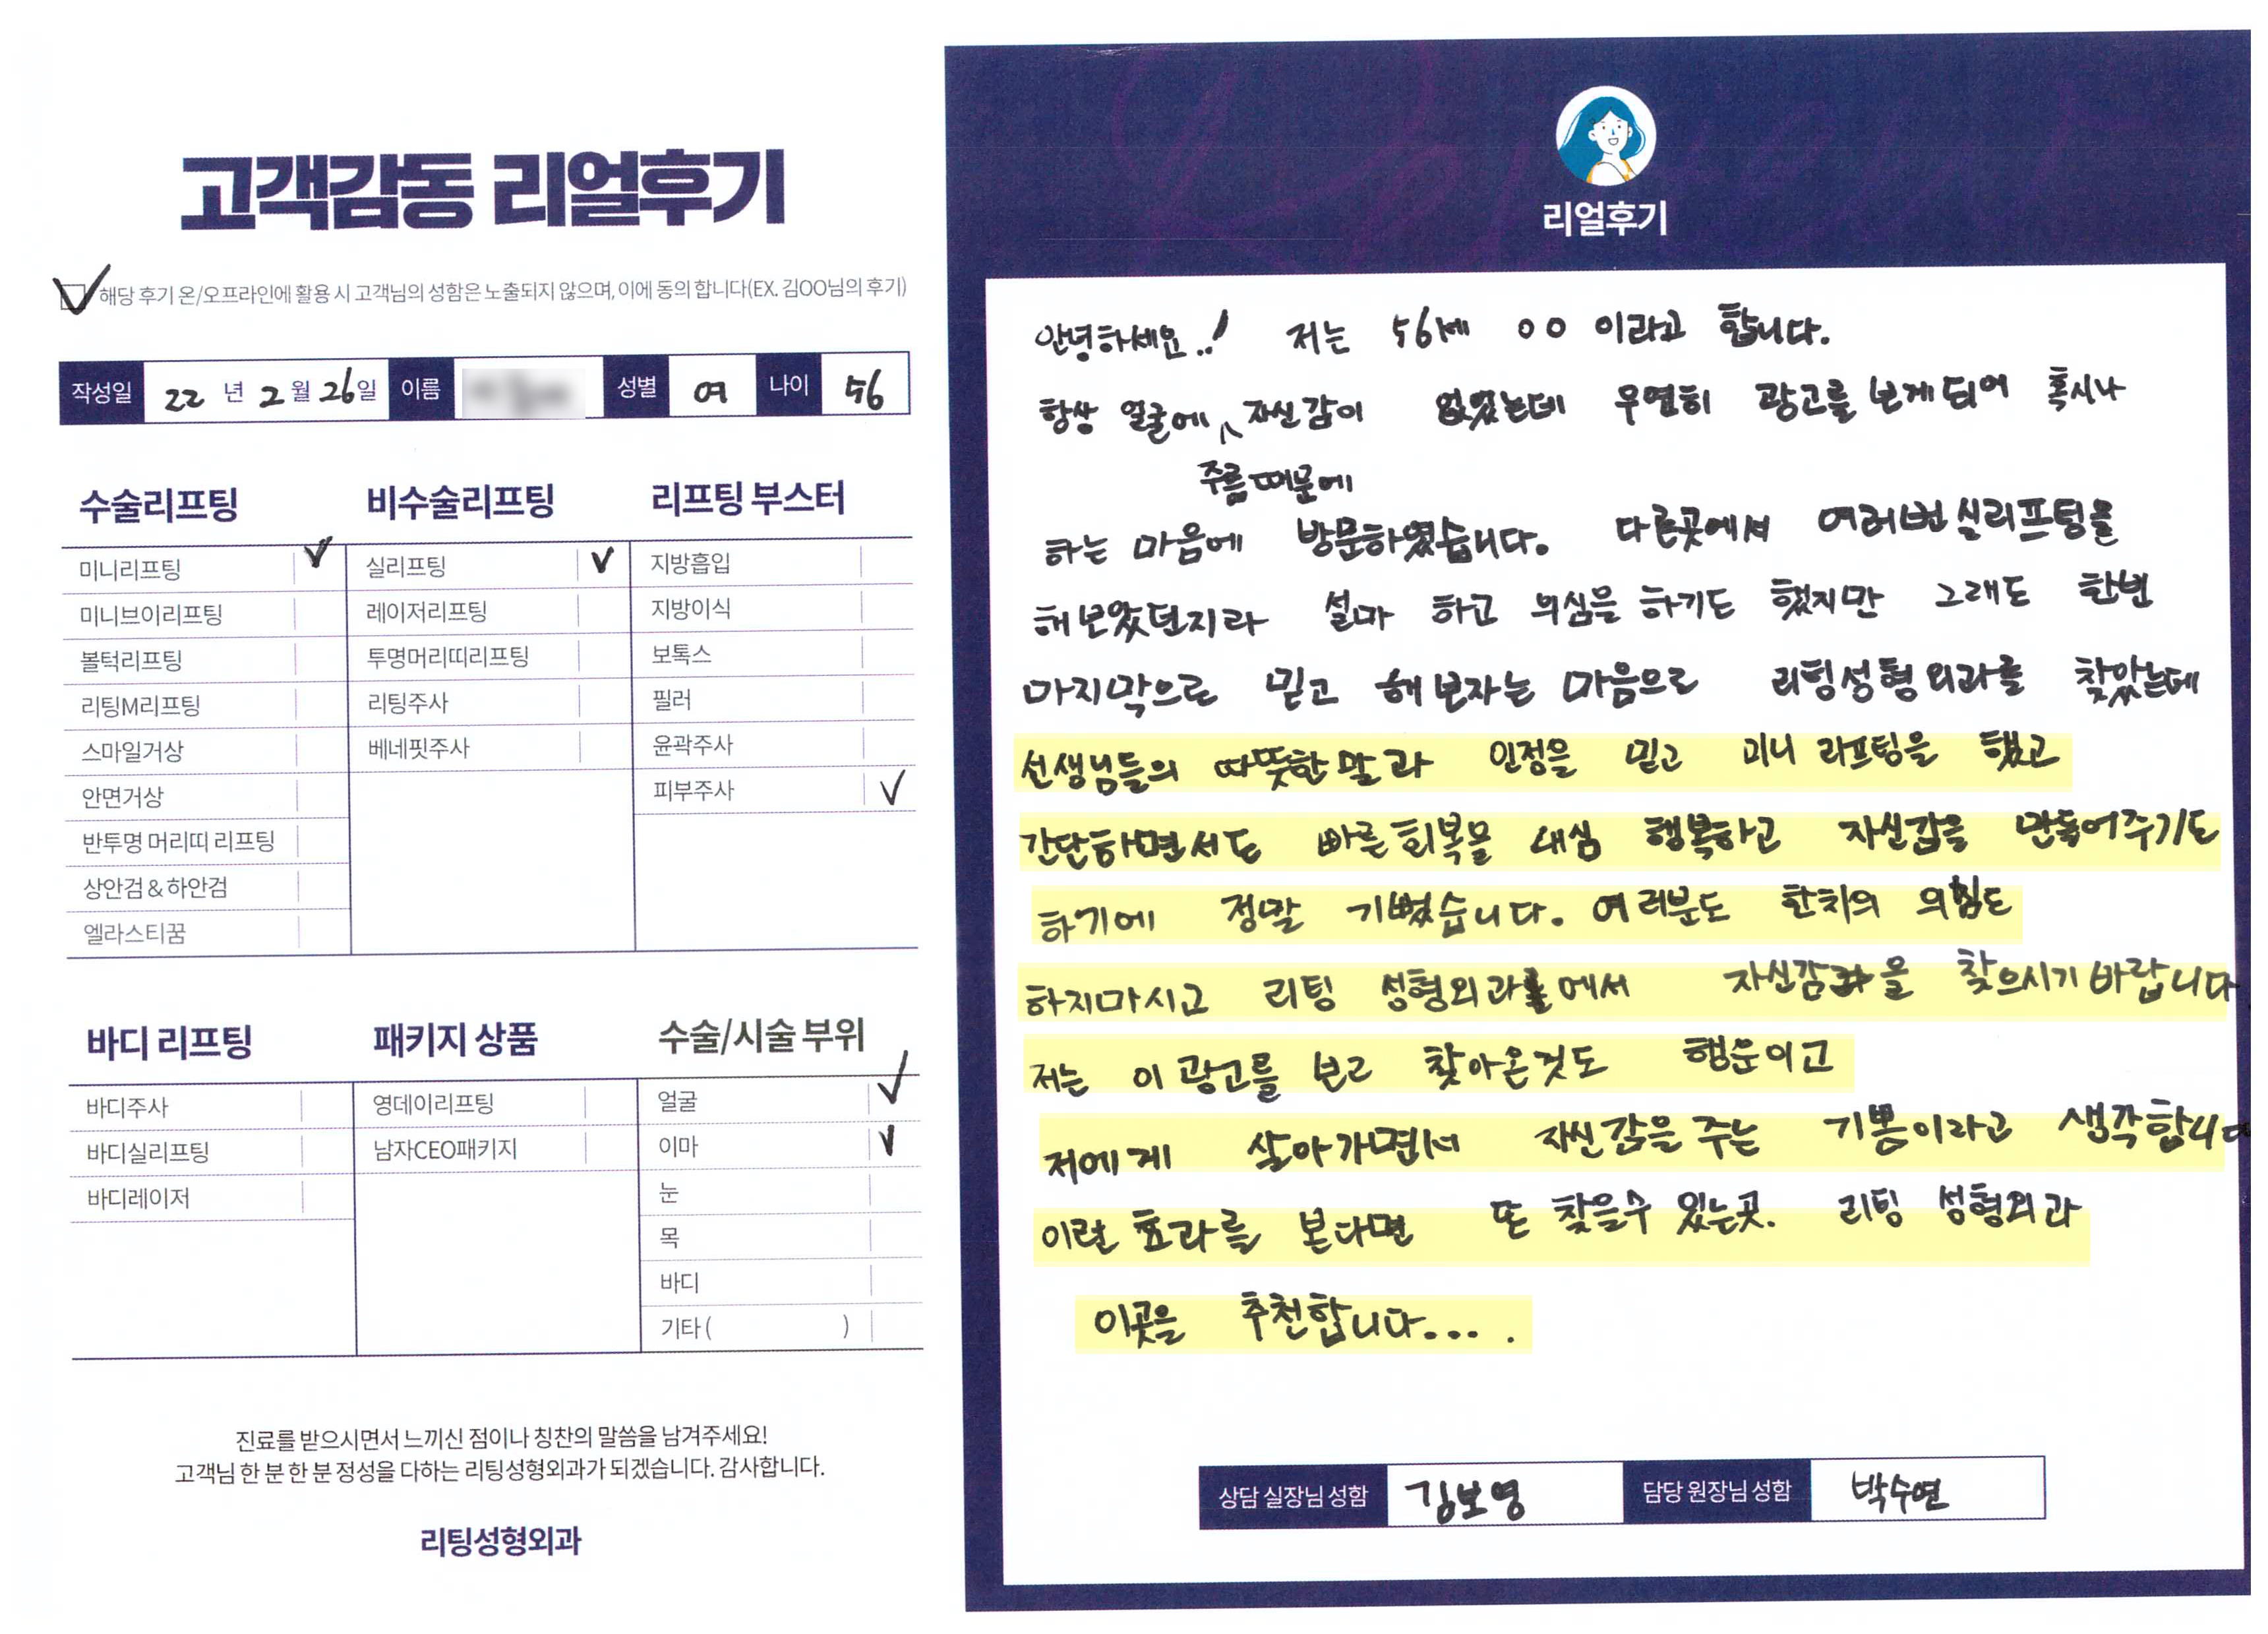 고객감동 리얼후기
해당 후기 온/오프라인에 활용 시 고객님의 성함은 노출되지 않으며, 이에 동의 합니다(EX. 김OO님의 후기)
작성일 22 년 2 월 26 일 이름 성별 여 나이 56
수술리프팅
미니리프팅
미니브이리프팅
볼턱리프팅
리팅M리프팅
스마일거상
안면거상
반투명 머리띠 리프팅
상안검 & 하안검
엘라스티꿈
비수술리프팅
실리프팅
레이저리프팅
투명머리띠리프팅
리팅주사
베네핏주사
리프팅 부스터
지방흡입
지방이식
보톡스
필러
윤곽주사
피부주사
바디 리프팅
바디주사
바디실리프팅
바디레이저
패키지 상품
영데이리프팅
남자CEO패키지
수술/시술 부위
얼굴
이마
눈
목
바디
기타 ( )
진료를 받으시면서 느끼신 점이나 칭찬의 말씀을 남겨주세요!
고객님 한 분 한 분 정성을 다하는 리팅성형외과가 되겠습니다. 감사합니다.
리팅성형외과
리얼후기
안녕하세요..! 저는 56세 OO 이라고 합니다.
항상 얼굴에 자신감이 없었는데 우연히 광고를 보게되어 혹시나
주름때문에
하는 마음에 방문하였습니다. 다른곳에서 여러번 실리프팅을
해보았던지라 설마 하고 의심을 하기도 했지만 그래도 한번
마지막으로 믿고 해보자는 마음으로 리팅성형외과를 찾았는데
선생님들의 따뜻한 말과 인정을 믿고 미니 리프팅을 했고
간단하면서도 빠른회복을 내심 행복하고 자신감을 만들어주기도
하기에 정말 기뻤습니다. 여러분도 한치의 의심도
하지마시고 리팅 성형외과에서 자신감을 찾으시기 바랍니다
저는 이 광고를 보고 찾아온것도 행운이고
저에게 살아가면서 자신감을 주는 기쁨이라고 생각합니다
이런 효과를 본다면 또 찾을수 있는곳. 리팅 성형외과
이곳을 추천합니다.... .
상담 실장님 성함 김보영 담당 원장님 성함 박수연